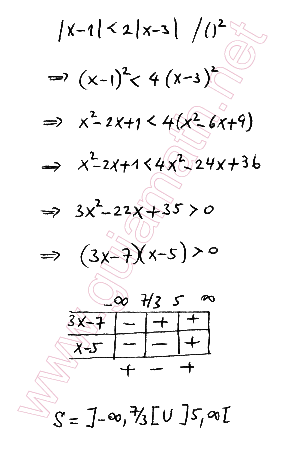 |x-1| < 2|x-3|  /()²
⇒ (x-1)² < 4(x-3)²
⇒ x²-2x+1 < 4(x²-6x+9)
⇒ x²-2x+1 < 4x²-24x+36
⇒ 3x²-22x+35 > 0
⇒ (3x-7)(x-5) > 0
-∞ 7/3 5 ∞
3x-7 - + +
x-5 - - +
+ - +
S = ]-∞, 7/3[ U ]5, ∞[
www.guiamath.net